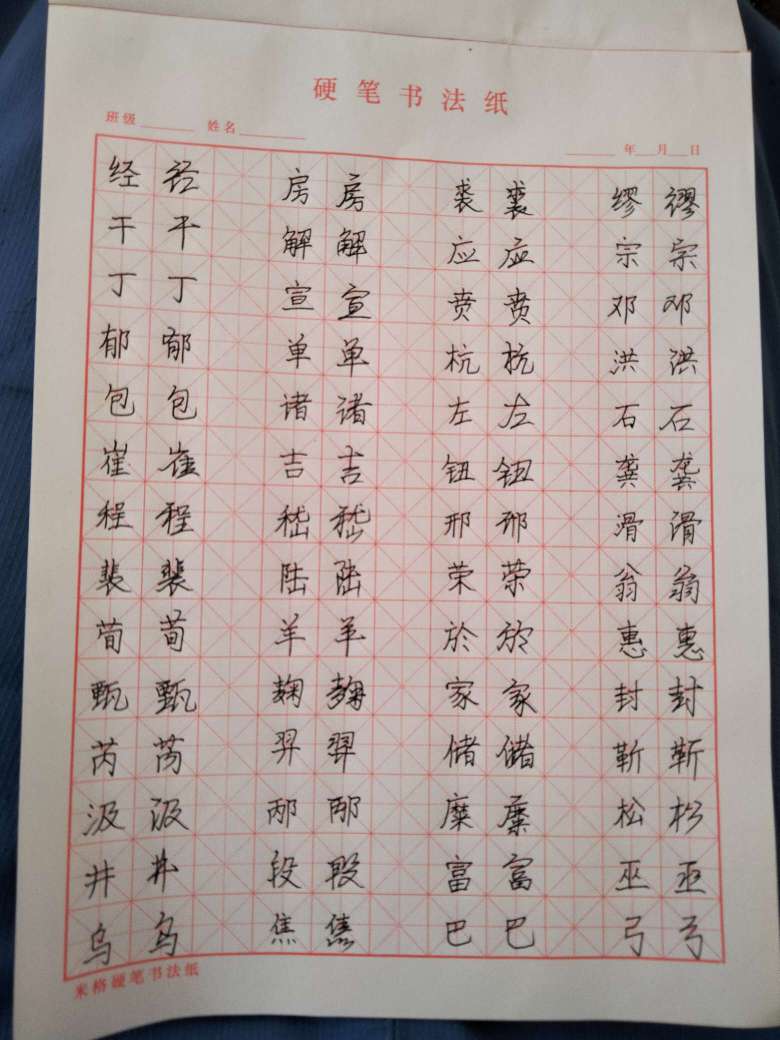 硬笔书法纸
班级 姓名 年 月 日
经 经 房 房 裘 裘 缪 缪
干 干 解 解 应 应 宗 宗
丁 丁 宣 宣 贲 贲 邓 邓
郁 郁 单 单 杭 杭 洪 洪
包 包 诸 诸 左 左 石 石
崔 崔 吉 吉 钮 钮 龚 龚
程 程 嵇 嵇 邢 邢 滑 滑
裴 裴 陆 陆 荣 荣 翁 翁
荀 荀 羊 羊 於 於 惠 惠
甄 甄 麹 麹 家 家 封 封
芮 芮 羿 羿 储 储 靳 靳
汲 汲 邴 邴 糜 糜 松 松
井 井 段 段 富 富 巫 巫
乌 乌 焦 焦 巴 巴 弓 弓
米格硬笔书法纸